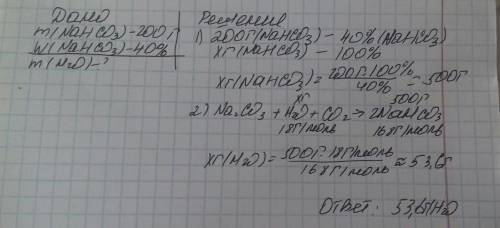 Дано
m(NaHCO3)-200г
W(NaHCO3)-40%
m(H2O)-?
Решение
1) 200г(NaHCO3) - 40%(NaHCO3)
хг(NaHCO3) - 100%
хг(NaHCO3) = 200г·100% / 40% = 500г
хг 500г
2) Na2CO3 + H2O + CO2 → 2NaHCO3
18г/моль 168г/моль
хг(H2O) = 500г·18г/моль / 168г/моль ≈ 53,6г
Ответ: 53,6гH2O